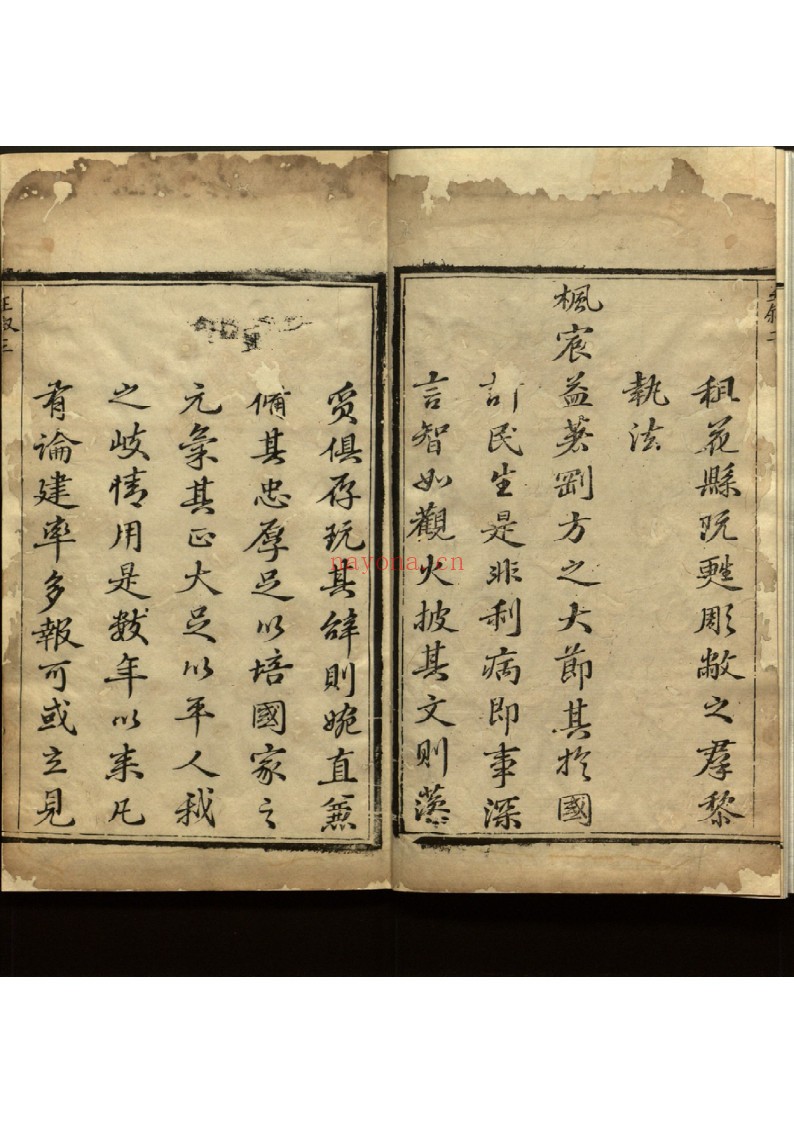 租苑縣既甦彫敝之羣黎
執法
楓宸益著剛方之大節其扵國
計民生是非利病即事深
言智如觀火披其文則藻
質俱存玩其辭則婉直兼
備其忠厚足以培國家之
元氣其正大足以平人我
之岐情用是數年以来凡
有論建率多報可或立見
nayona.cn